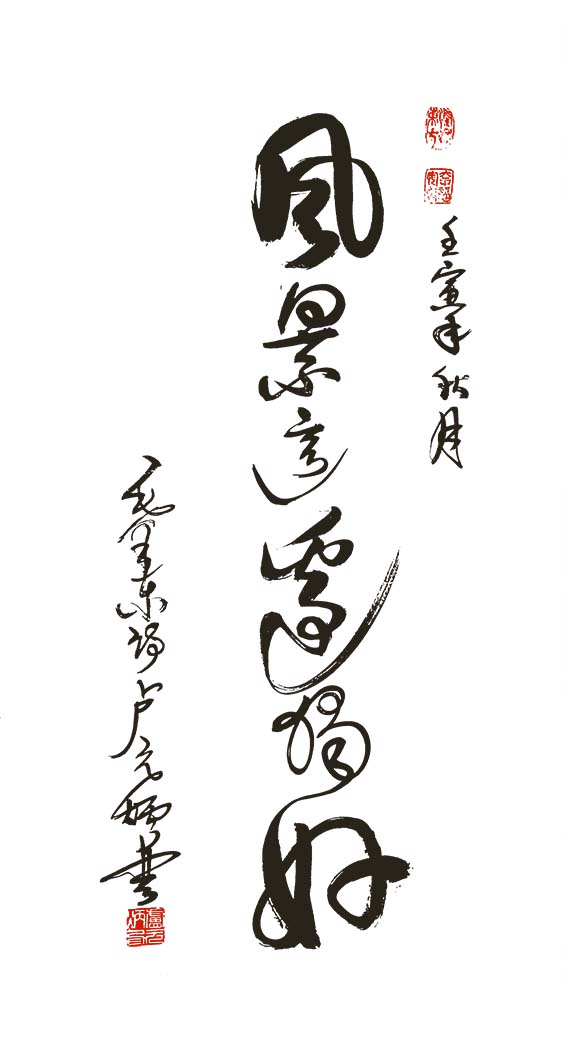 壬寅年秋月
風景這邊獨好
毛澤東詞卢元炳書
盧元炳